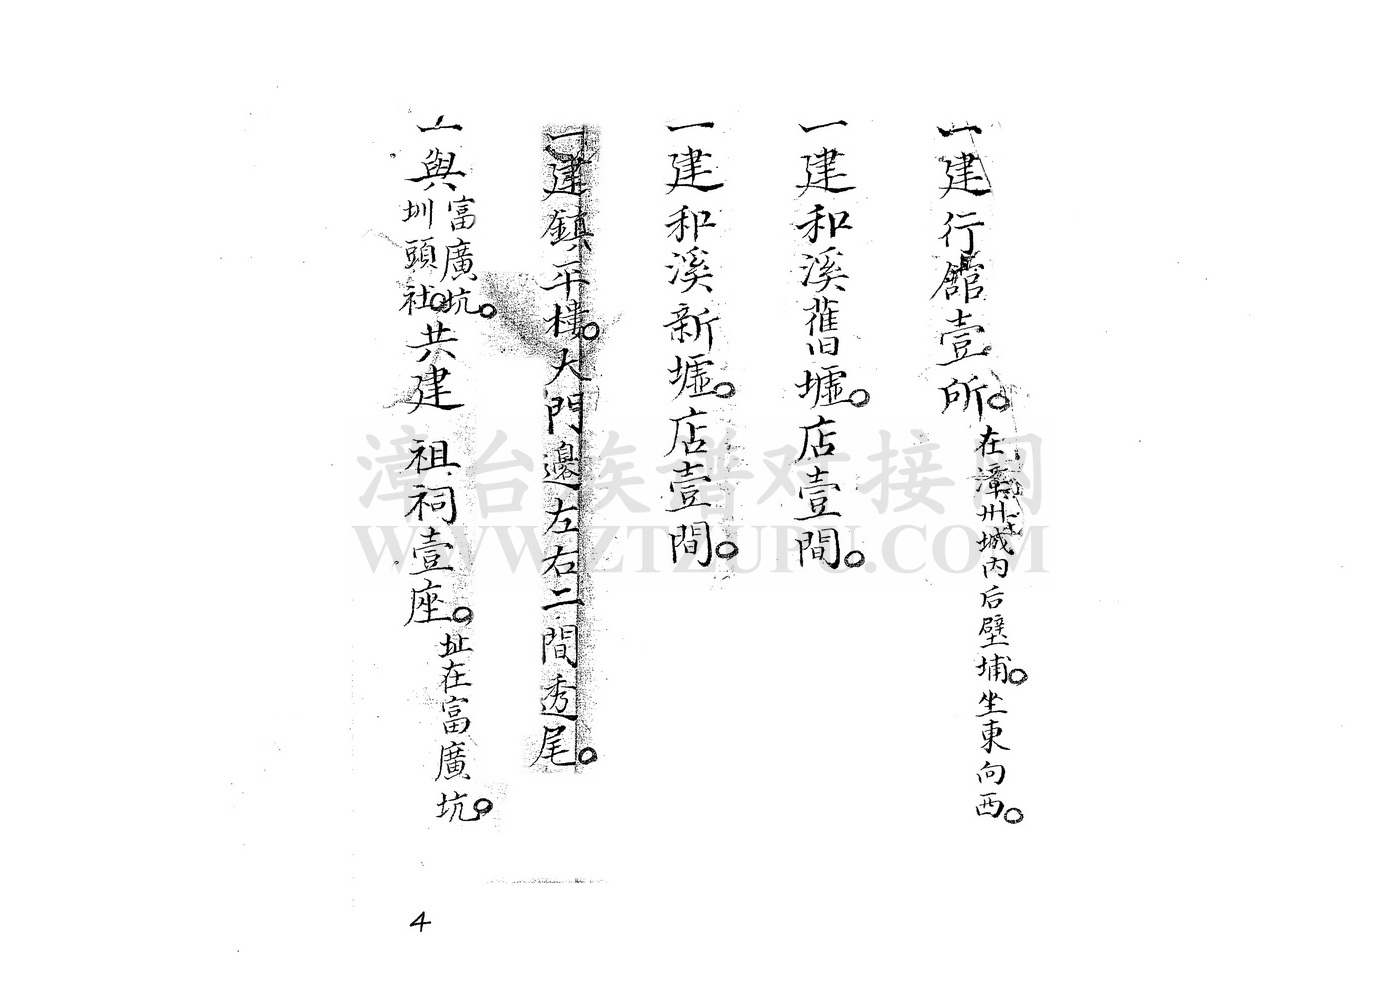 一建行館壹所。在漳州城內后壁埔。坐東向西。
一建和溪舊墟。店壹間。
一建和溪新墟。店壹間。
一建鎮平樓。大門邊左右二間透尾。
一與富廣坑。圳頭社。共建 祖祠壹座。址在富廣坑。
4
漳台族谱对接网
WWW.ZTZUPU.COM